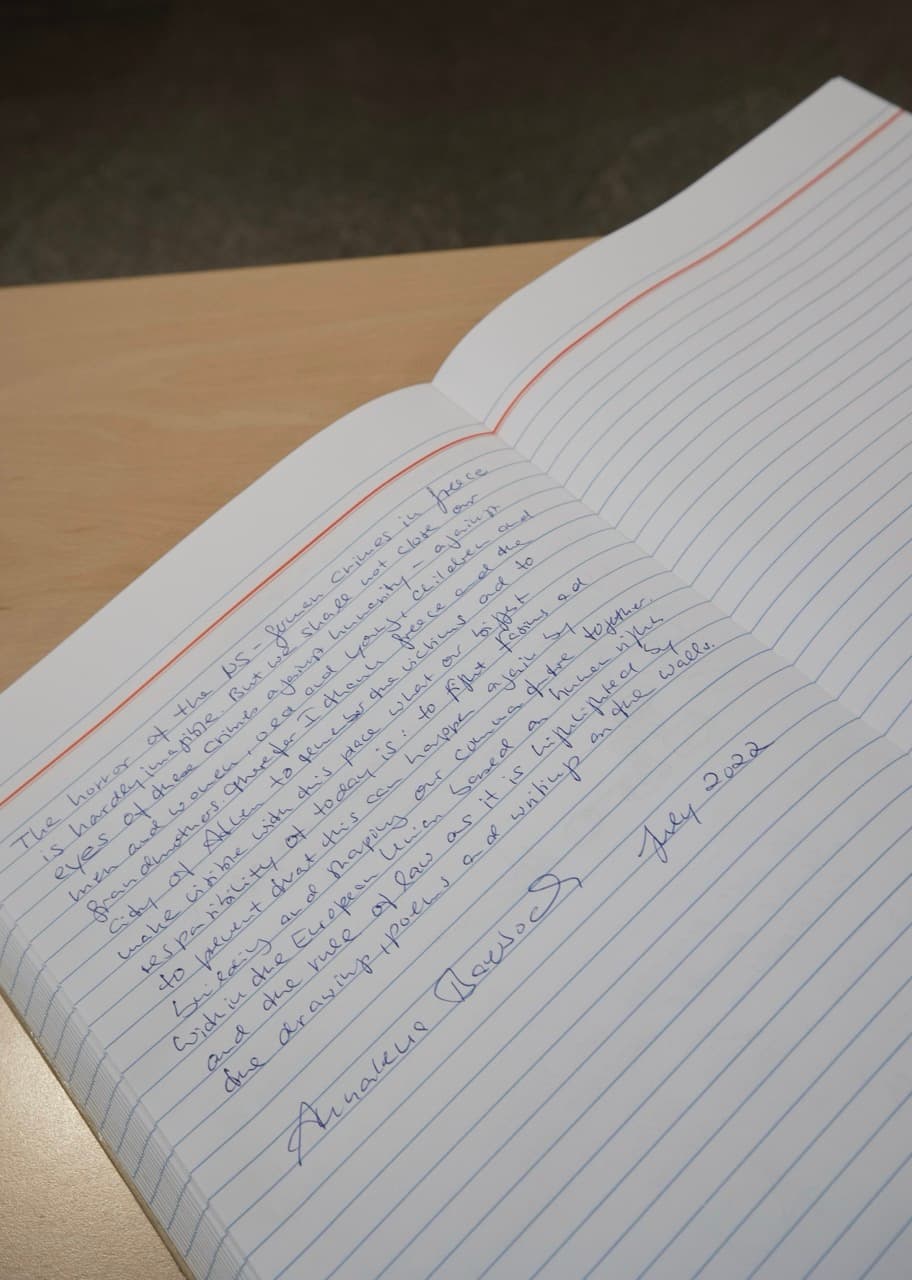 The horror of the NS-German Crimes in Greece
is hardly imagible. But we shall not close our
eyes of these crimes against humanity - against
men and women, old and young, children and
grandmothers. Therefor I thank Greece and the
city of Athen to remember the victims and to
make visible with this place what our biggst
responsibility of today is: to fight facism and
to prevent that this can happen again by
building and shaping our common future together
within the European Union based on human rights
and the rule of law as it is highlighted by
the drawings, poems and writings on the walls.
Annalena Baerbock July 2022